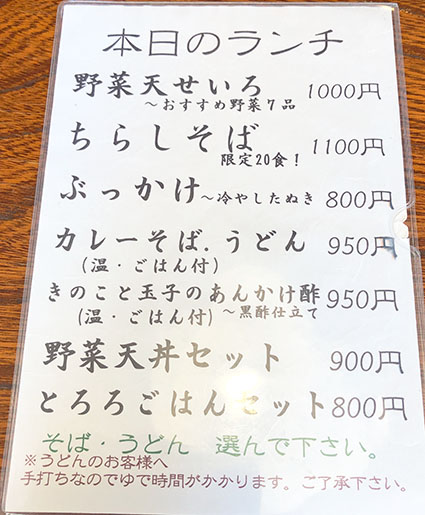 本日のランチ
野菜天せいろ 1000円
～おすすめ野菜7品
ちらしそば 1100円
限定20食！
ぶっかけ～冷やしたぬき 800円
カレーそば.うどん 950円
(温・ごはん付)
きのこと玉子のあんかけ酢 950円
(温・ごはん付)～黒酢仕立て
野菜天丼セット 900円
とろろごはんセット 800円
そば・うどん 選んで下さい。
※うどんのお客様へ
手打ちなのでゆで時間がかかります。ご了承下さい。